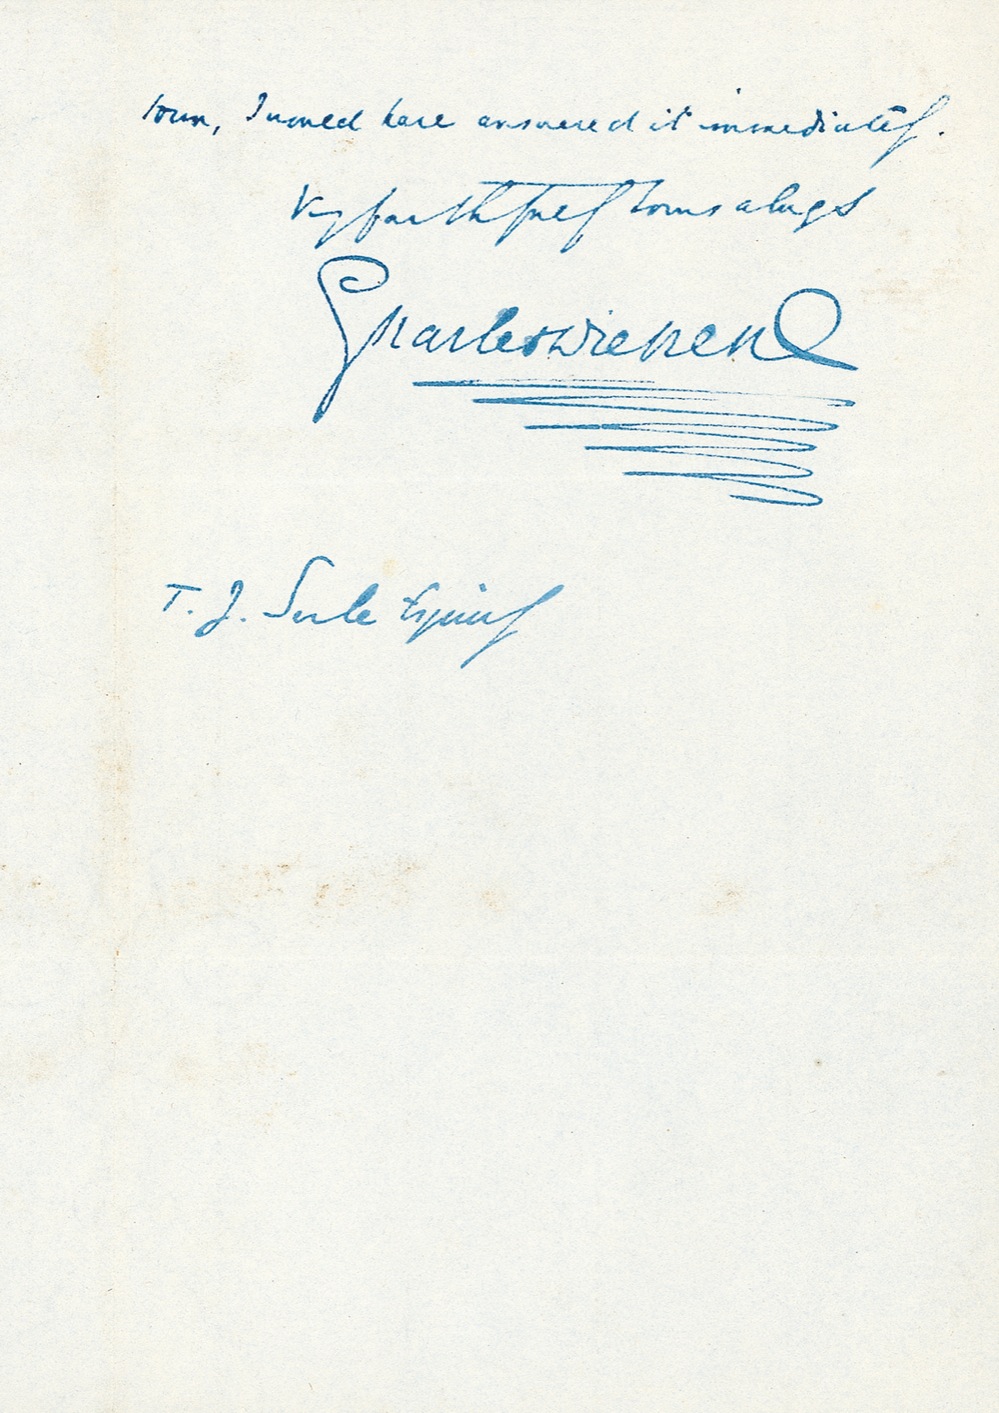 town, I would have answered it immediately.
Very faithfully Yours always
Charles Dickens
T. J. Serle Esquire